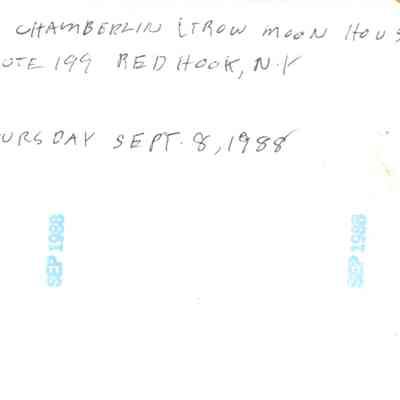 CHAMBERLIN MOON HOUS
UTE 199 RED HOOK, N.Y
URSDAY SEPT. 8, 1988
SEP 1988
SEP 1988